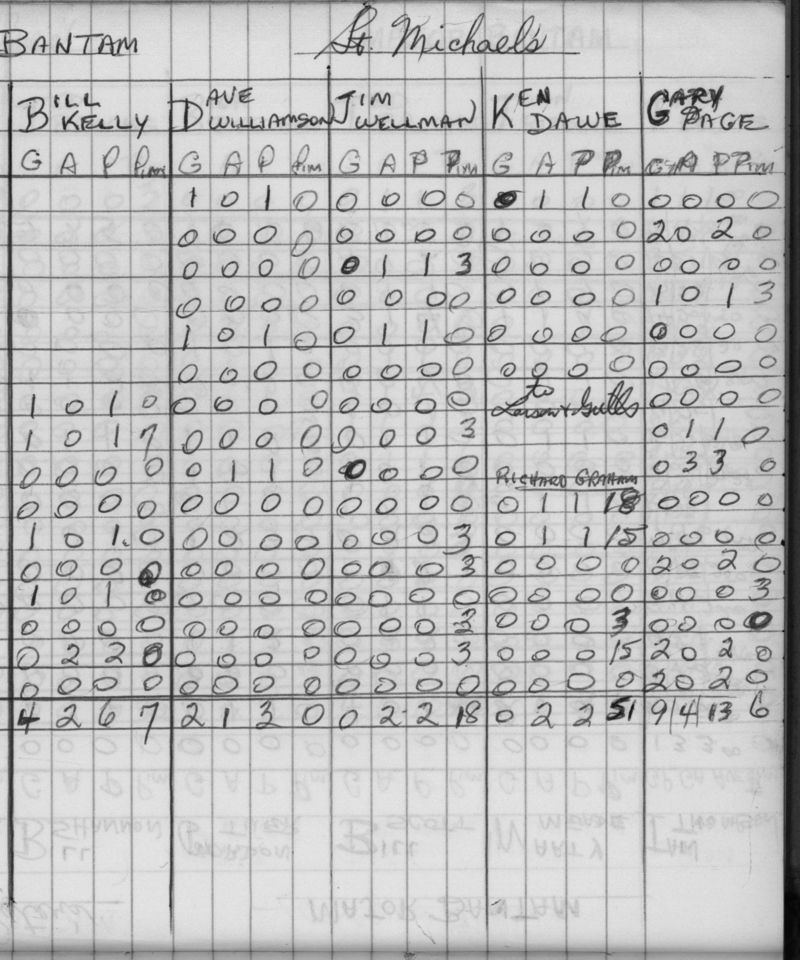 BANTAM St. Michael's
BILL KELLY DAVE WILLIAMSON JIM WELLMAN KEN DAWE GARY PAGE
G A P Pim G A P Pim G A P Pim G A P Pim G A P Pim
1 0 1 0 0 0 0 0 0 1 1 0 0 0 0 0
0 0 0 0 0 0 0 0 0 0 0 0 2 0 2 0
0 0 0 0 0 1 1 3 0 0 0 0 0 0 0 0
0 0 0 0 0 0 0 0 0 0 0 0 1 0 1 3
1 0 1 0 0 1 1 0 0 0 0 0 0 0 0 0
0 0 0 0 0 0 0 0 0 0 0 0 0 0 0 0
1 0 1 0 0 0 0 0 0 0 0 0 to 0 0 0 0
1 0 1 7 0 0 0 0 0 0 0 3 0 1 1 0
0 0 0 0 0 1 1 0 0 0 0 0 RICHARD GRAHAM 0 3 3 0
0 0 0 0 0 0 0 0 0 0 0 0 0 1 1 18 0 0 0 0
1 0 1 0 0 0 0 0 0 0 0 3 0 1 1 15 0 0 0 0
0 0 0 0 0 0 0 0 0 0 0 3 0 0 0 0 2 0 2 0
1 0 1 0 0 0 0 0 0 0 0 0 0 0 0 0 0 0 0 3
0 0 0 0 0 0 0 0 0 0 0 3 0 0 0 3 0 0 0 0
0 2 2 0 0 0 0 0 0 0 0 3 0 0 0 15 2 0 2 0
0 0 0 0 0 0 0 0 0 0 0 0 0 0 0 0 2 0 2 0
4 2 6 7 2 1 3 0 0 2 2 18 0 2 2 51 9 4 13 6